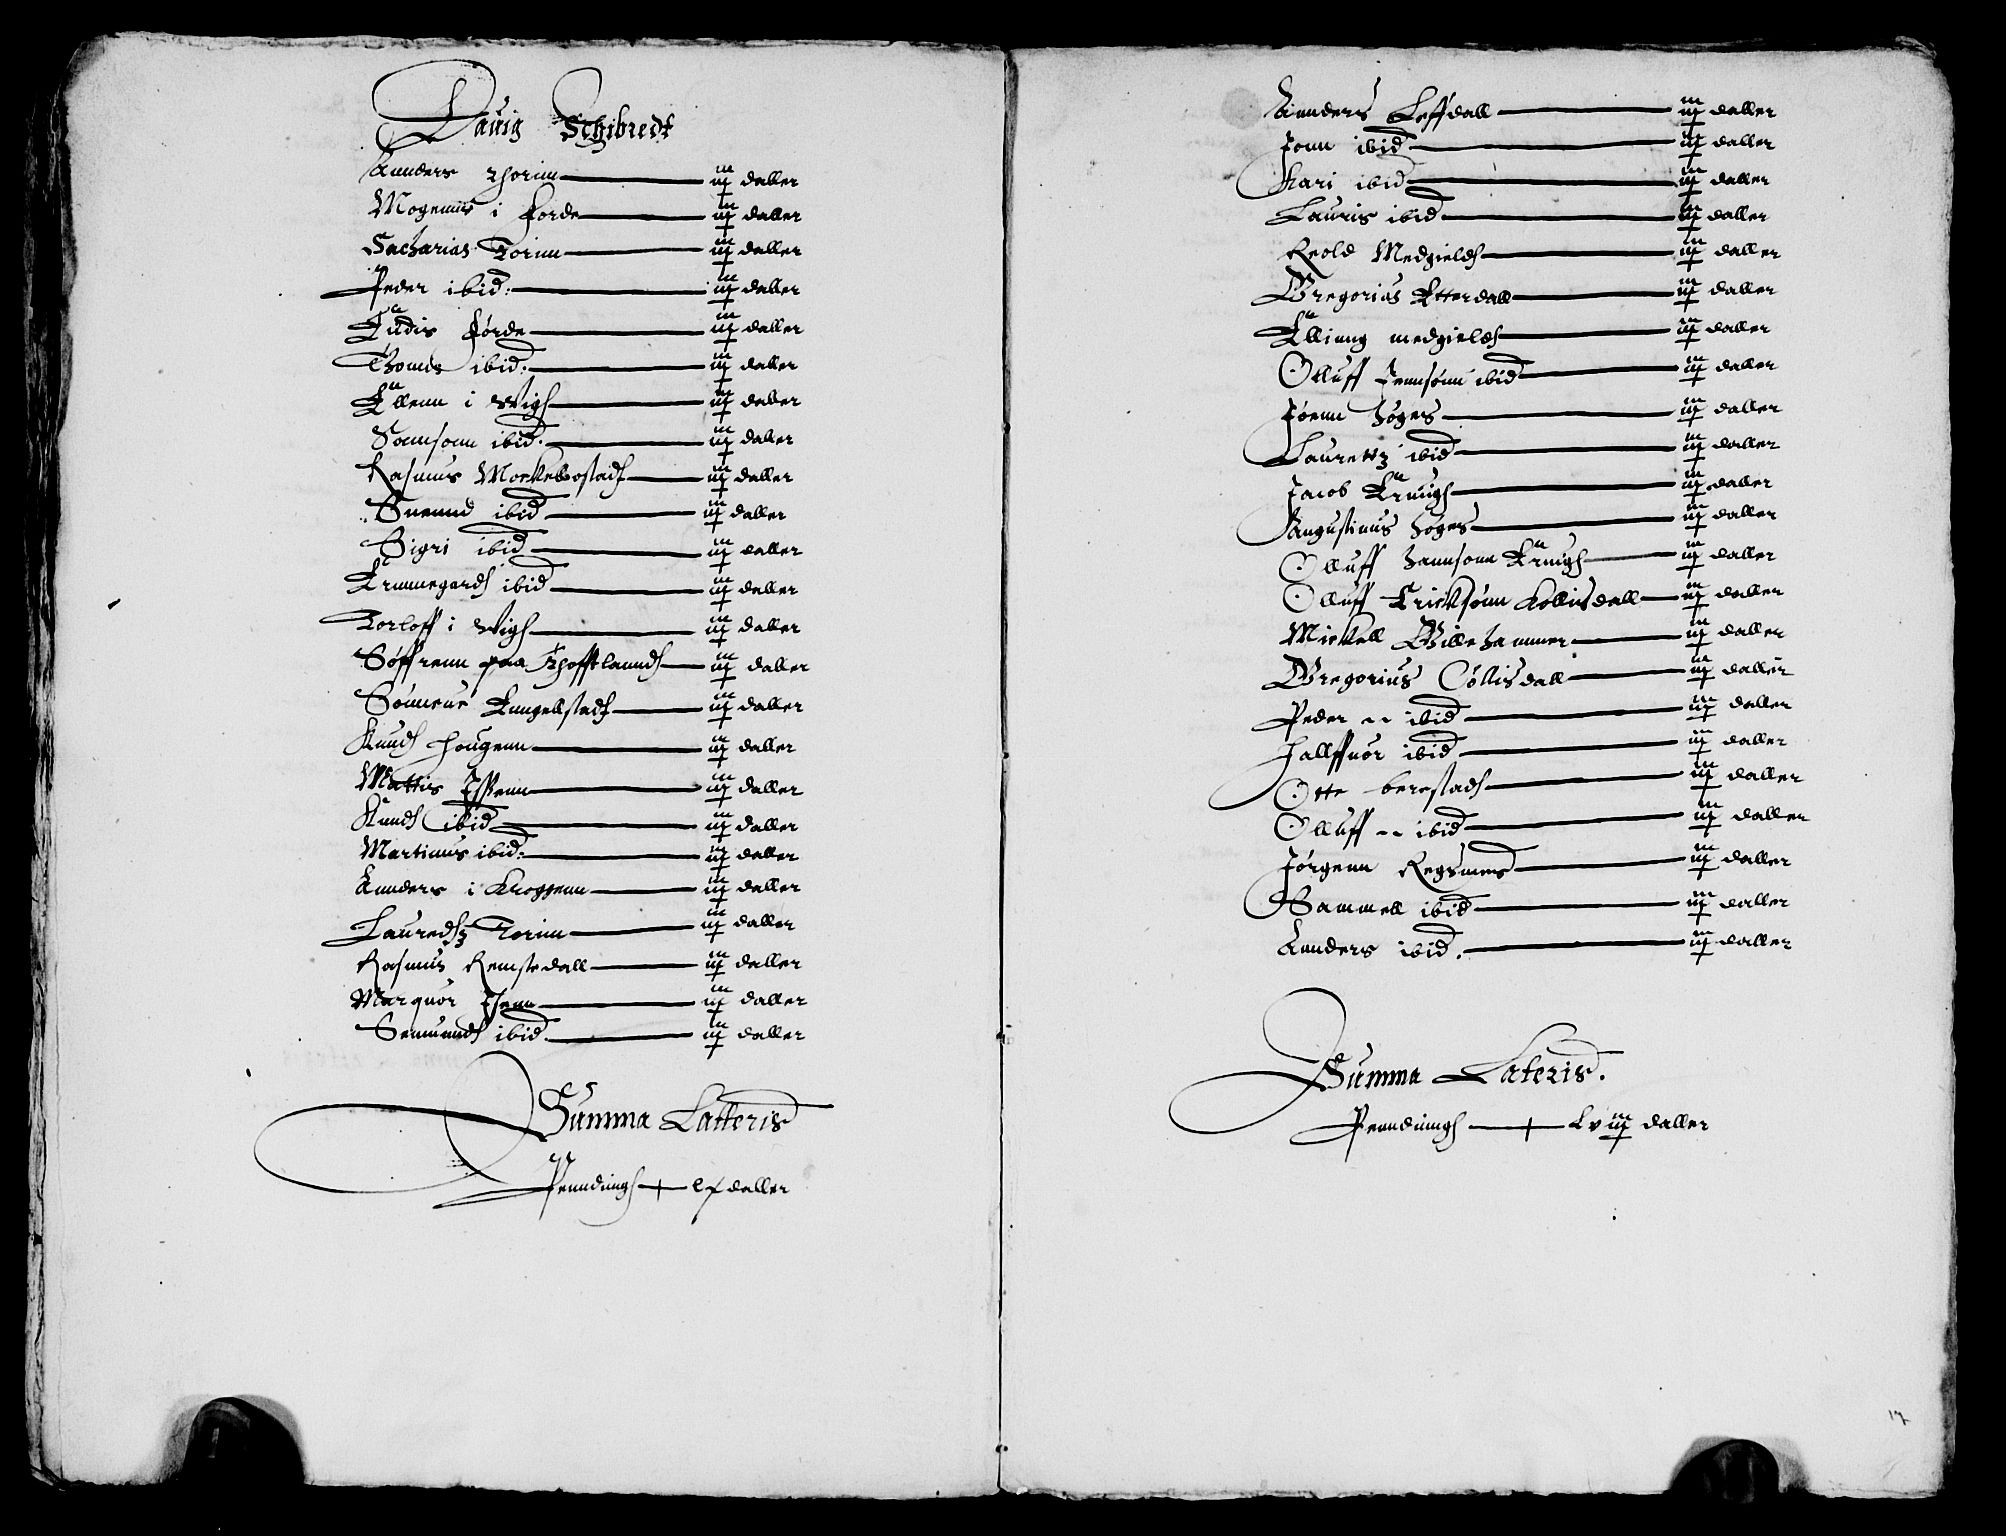 Dauig Schibredt
Anders Thorinn — iij daller
Mogenns i Førde — iij daller
Sacharias Torinn — iij daller
Peder ibid: — iij daller
Eudis Førde — iij daller
Thomes ibid: — iij daller
Ellenn i Wigh — iij daller
Somsonn ibid. — iij daller
Rasmus Morkelbostadh — iij daller
Suennd ibid — iij daller
Sigri ibid — iij daller
Ermmegardh ibid — iij daller
Torloff i Wigh — iij daller
Søffrenn paa Thofftlanndh — iij daller
Sonneue Enngellstadh — iij daller
Knudh Hougenn — iij daller
Mattis Issenn — iij daller
Knudh ibid — iij daller
Martinus ibid: — iij daller
Anders i Kroggenn — iij daller
Lauredtz Torinn — iij daller
Rasmus Remstedall — iij daller
Marquor Isenn — iij daller
Semundh ibid. — iij daller
Summa Latteris
Penndinngh — daller
Annders Leffdall — iij daller
Jonn ibid — iij daller
Kari ibid — iij daller
Lauris ibid — iij daller
Reold Medgieldh — iij daller
Gregorius Etterdall — iij daller
Elliung medgieldh — iij daller
Olluff Jennsønn ibid — iij daller
Jørnn Høges — iij daller
Laurettz ibid — iij daller
Jacob Eruigh — iij daller
Augustinus Høges — iij daller
Olluff Hannsonn Eruigh — iij daller
Olluff Ericksønn Kollisdall — iij daller
Mickell Gillehammer — iij daller
Gregorius Collisdall — iij daller
Peder ibid — iij daller
Hallffuor ibid — iij daller
Otte berstadh — iij daller
Olluff ibid — iij daller
Jørgenn Regsmes — iij daller
Sammell ibid — iij daller
Annders ibid. — iij daller
Summa Lateris.
Penndinngh — Lviiij daller
17